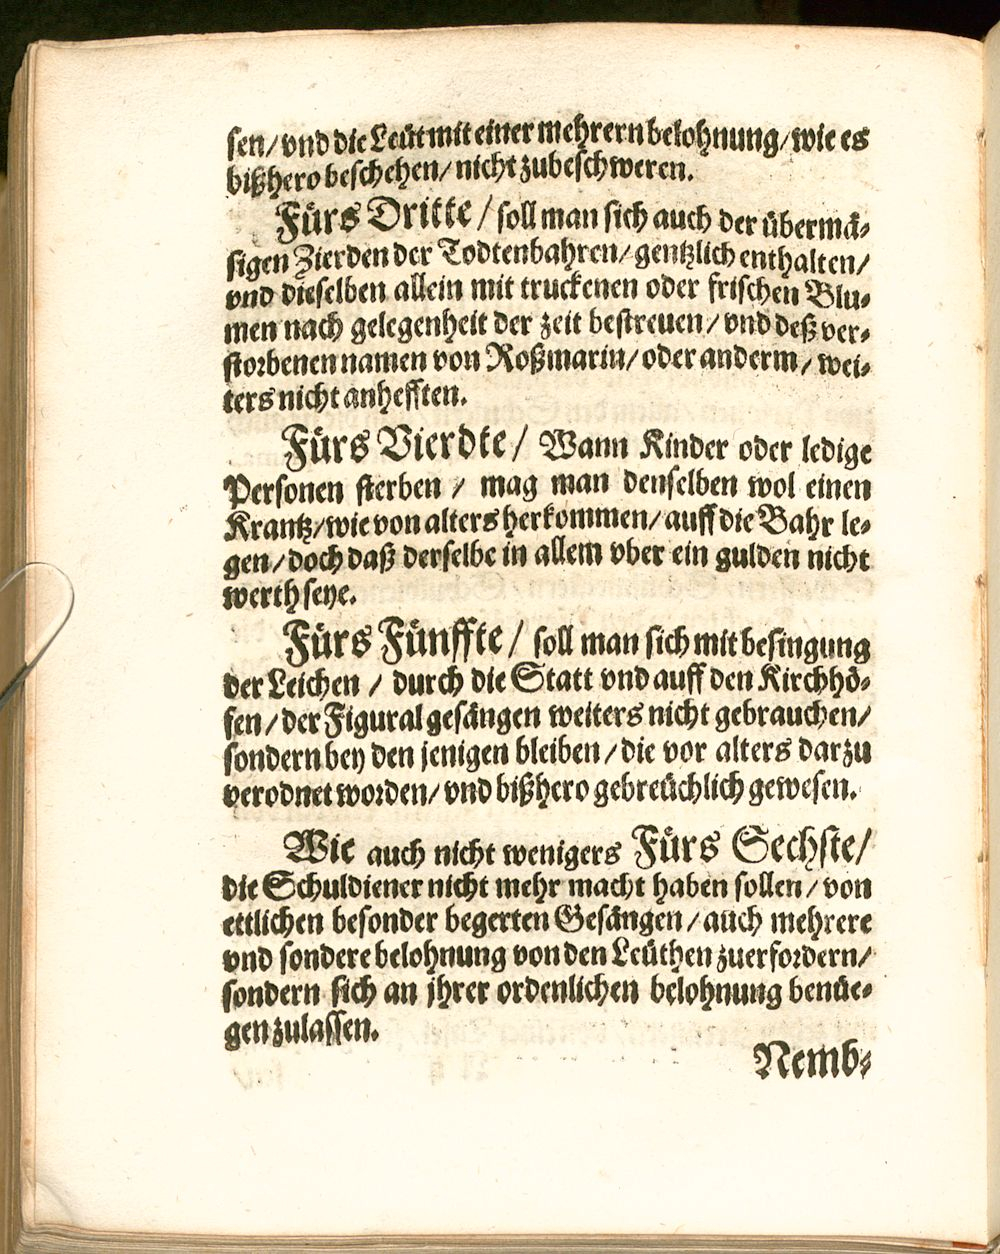 sen/vnd die Leüt mit einer mehrern belohnung/wie es
bißhero beschehen/nicht zubeschweren.
Fürs Dritte/soll man sich auch der übermä-
sigen Zierden der Todtenbahren/gentzlich enthalten/
vnd dieselben allein mit truckenen oder frischen Blu-
men nach gelegenheit der zeit bestreuen/vnd deß ver-
storbenen namen von Roßmarin/oder anderm/wei-
ters nicht anhefften.
Fürs Vierdte/ Wann Kinder oder ledige
Personen sterben / mag man denselben wol einen
Krantz/wie von alters herkommen/auff die Bahr le-
gen/doch daß derselbe in allem vber ein gulden nicht
werth seye.
Fürs Fünffte/ soll man sich mit besingung
der Leichen / durch die Statt vnd auff den Kirchhö-
fen/der Figural gesängen weiters nicht gebrauchen/
sondern bey den jenigen bleiben/die vor alters darzu
verodnet worden/vnd bißhero gebreüchlich gewesen.
Wie auch nicht wenigers Fürs Sechste/
die Schuldiener nicht mehr macht haben sollen/von
ettlichen besonder begerten Gesängen/auch mehrere
vnd sondere belohnung von den Leüthen zuerfordern/
sondern sich an jhrer ordenlichen belohnung benüe-
gen zulassen.
Nemb-